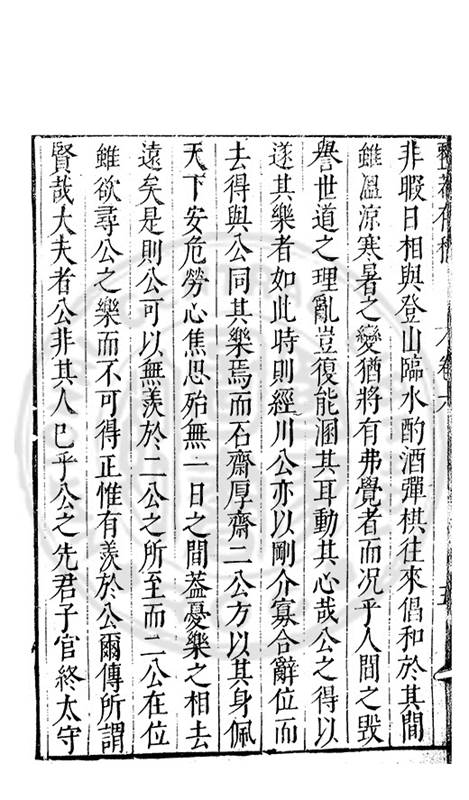 整菴存稿 卷六 五
非暇日相與登山臨水酌酒彈棋往來倡和於其間
雖溫涼寒暑之變猶將有弗覺者而况乎人間之毀
譽世道之理亂豈復能溷其耳動其心哉公之得以
遂其樂者如此時則經川公亦以剛介寡合辭位而
去得與公同其樂焉而石齋厚齋二公方以其身佩
天下安危勞心焦思殆無一日之間葢憂樂之相去
遠矣是則公可以無羨於二公之所至而二公在位
雖欲尋公之樂而不可得正惟有羨於公爾傳所謂
賢哉大夫者公非其人已乎公之先君子官終太守